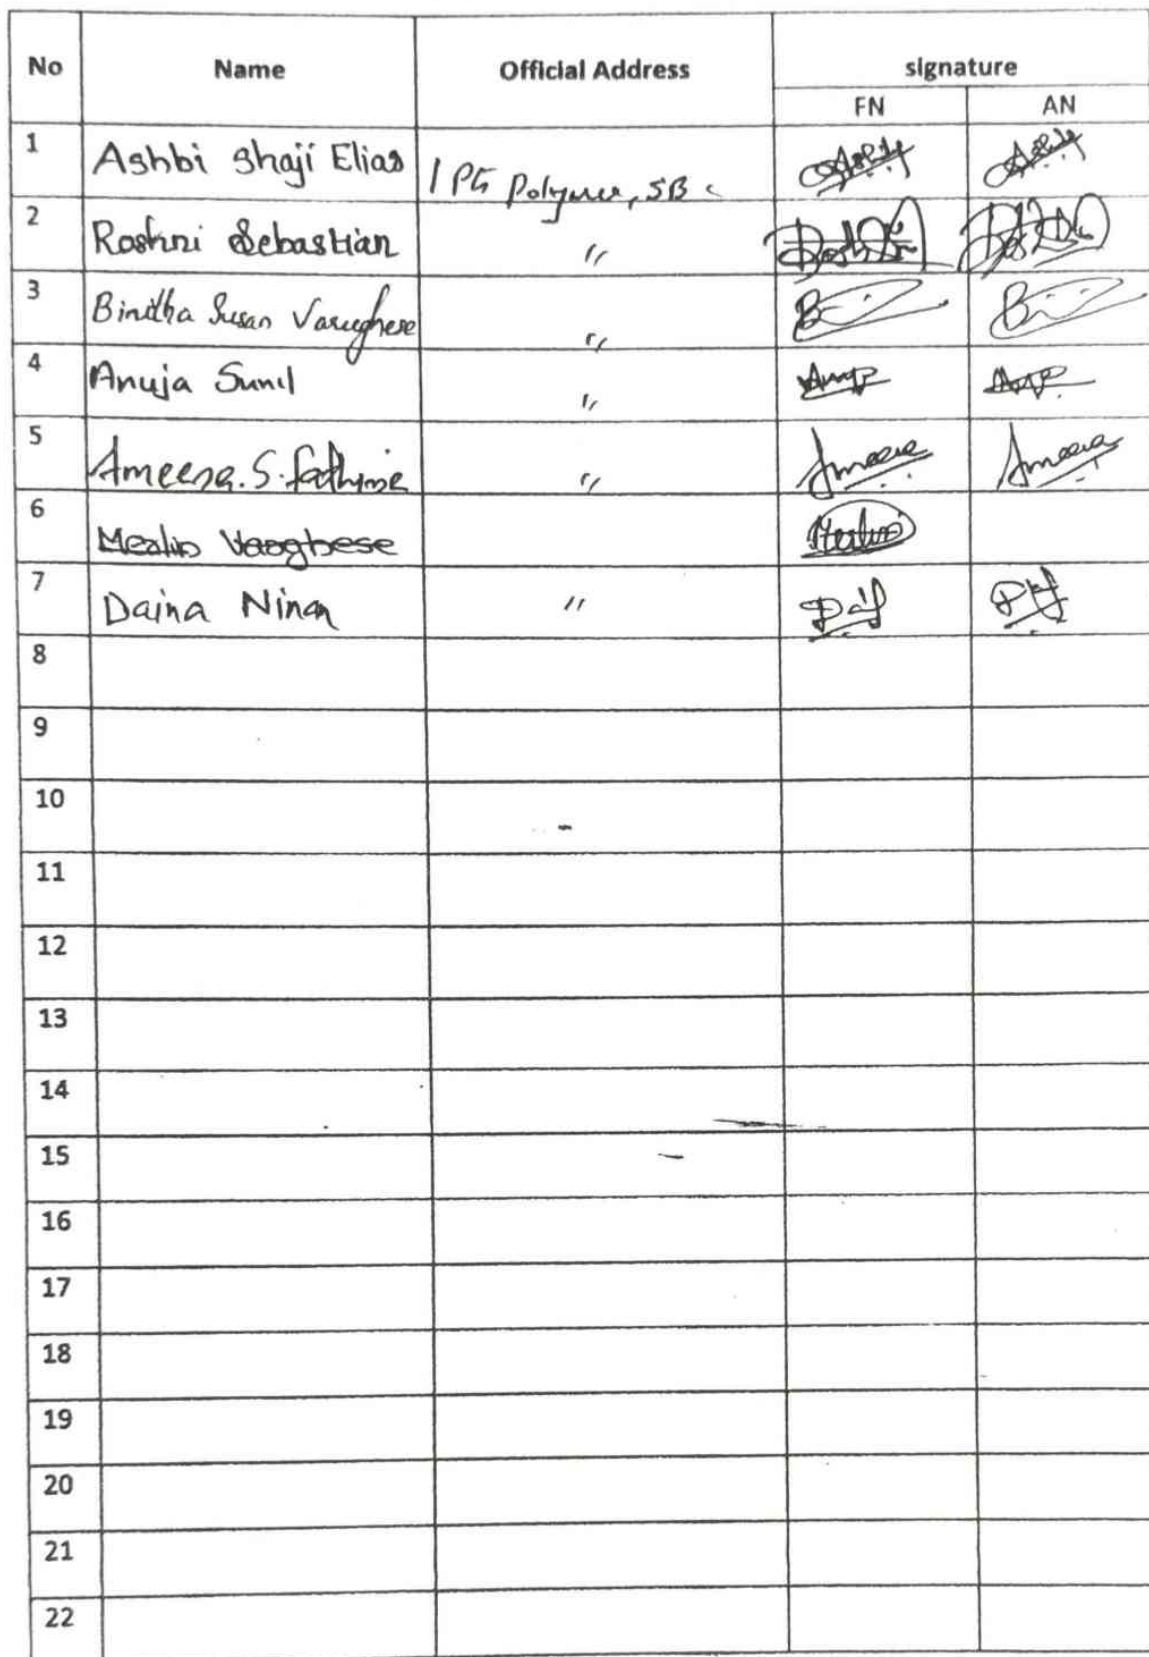 No Name Official Address signature
FN AN
1 Ashbi Shaji Elias 1 PG Polymer, SB C
2 Roshni Sebastian "
3 Bindha Susan Varughese "
4 Anuja Sunil "
5 Ameena.S.Fathima " Ameena Ameena
6 Merlin Varghese Merlin
7 Daina Ninan "
8
9
10
11
12
13
14
15
16
17
18
19
20
21
22